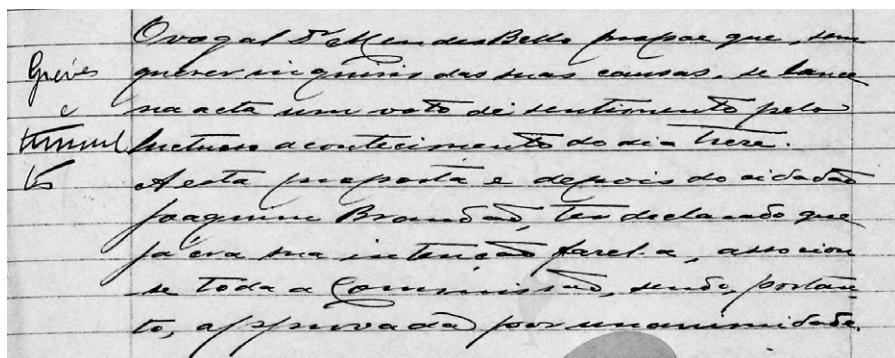 O vogal Sr Mendes Bello propoe que, sem
Gréves querer inquirir das suas causas, se lance
e na acta um voto de sentimento pelo
tumul luctuoso acontecimento do dia treze.
tos A esta proposta e depois do cidadão
Joaquim Brandão, ter declarado que
já era sua intenção fazel-a, associou
se toda a Commissão, sendo, portan
to, approvada por unanimidade.